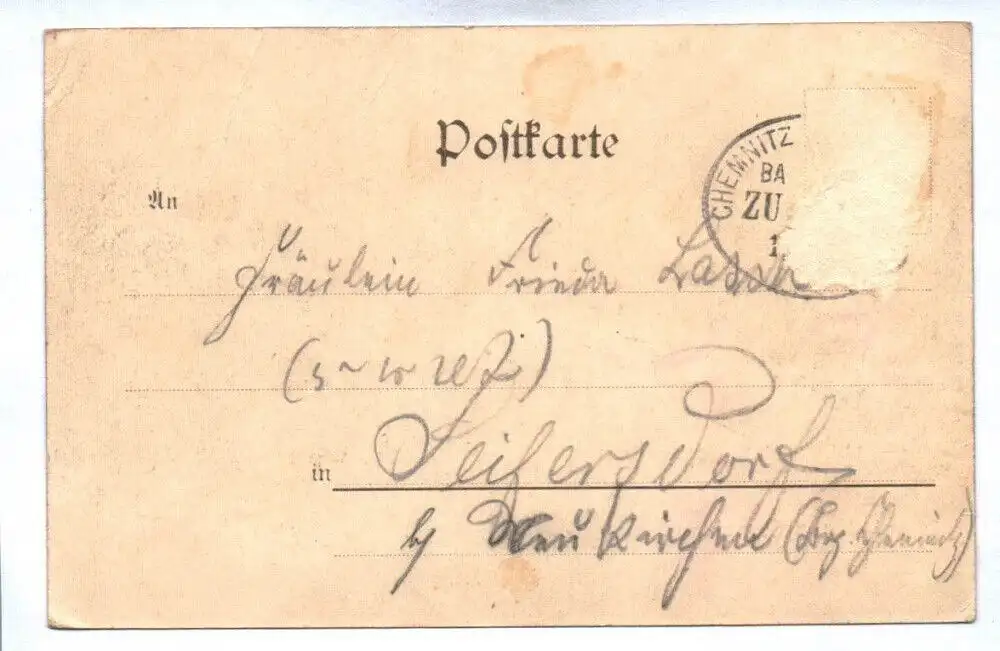 Postkarte
CHEMNITZ
BA
ZU
1
An
Fräulein Frieda
in Seifersdorf
b/ Neukirchen (Bez Chemnitz)